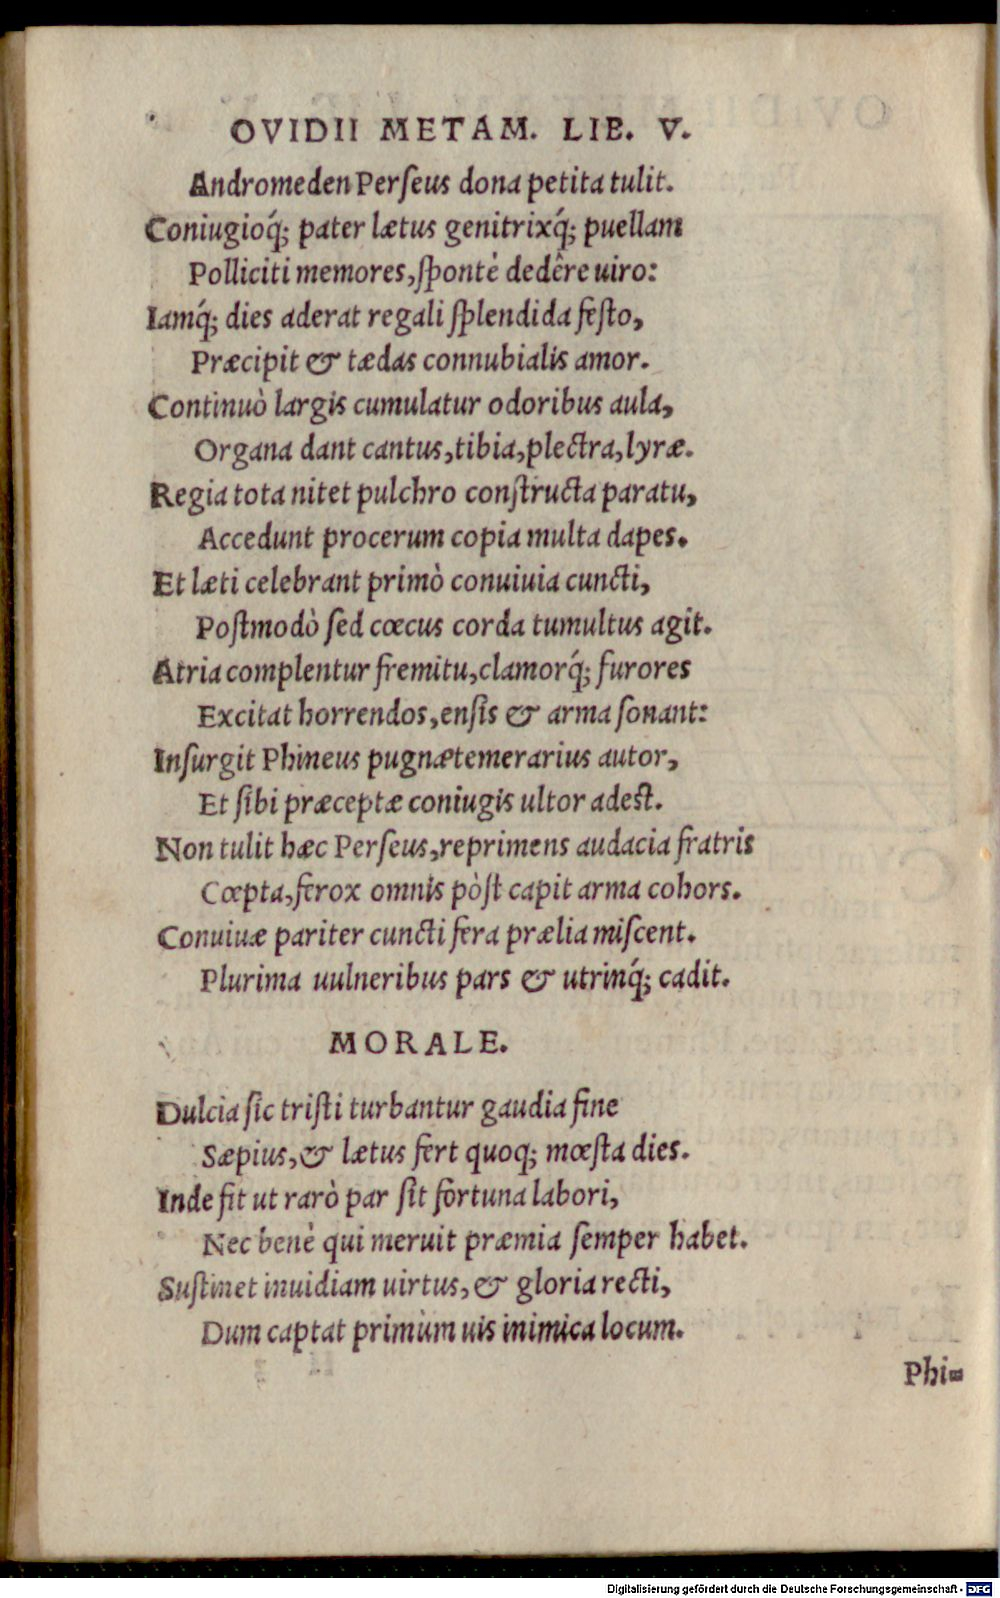 OVIDII METAM. LIB. V.
Andromeden Perſeus dona petita tulit.
Coniugioq́; pater lætus genitrixq́; puellam
Polliciti memores, ſpontè dedêre uiro:
Iamq́; dies aderat regali ſplendida feſto,
Præcipit & tædas connubialis amor.
Continuò largis cumulatur odoribus aula,
Organa dant cantus, tibia, plectra, lyræ.
Regia tota nitet pulchro conſtructa paratu,
Accedunt procerum copia multa dapes.
Et læti celebrant primò conuiuia cuncti,
Poſtmodò ſed cœcus corda tumultus agit.
Atria complentur fremitu, clamorq́; furores
Excitat horrendos, enſis & arma ſonant:
Inſurgit Phineus pugnæ temerarius autor,
Et ſibi præceptæ coniugis ultor adeſt.
Non tulit hæc Perſeus, reprimens audacia fratris
Cœpta, ferox omnis pòſt capit arma cohors.
Conuiuæ pariter cuncti fera prælia miſcent.
Plurima uulneribus pars & utrinq́; cadit.
MORALE.
Dulcia ſic triſti turbantur gaudia fine
Sæpius, & lætus fert quoq; mœſta dies.
Inde fit ut rarò par ſit fortuna labori,
Nec benè qui meruit præmia ſemper habet.
Suſtinet inuidiam uirtus, & gloria recti,
Dum captat primùm uis inimica locum.
Phi-
Digitalisierung gefördert durch die Deutsche Forschungsgemeinschaft - DFG